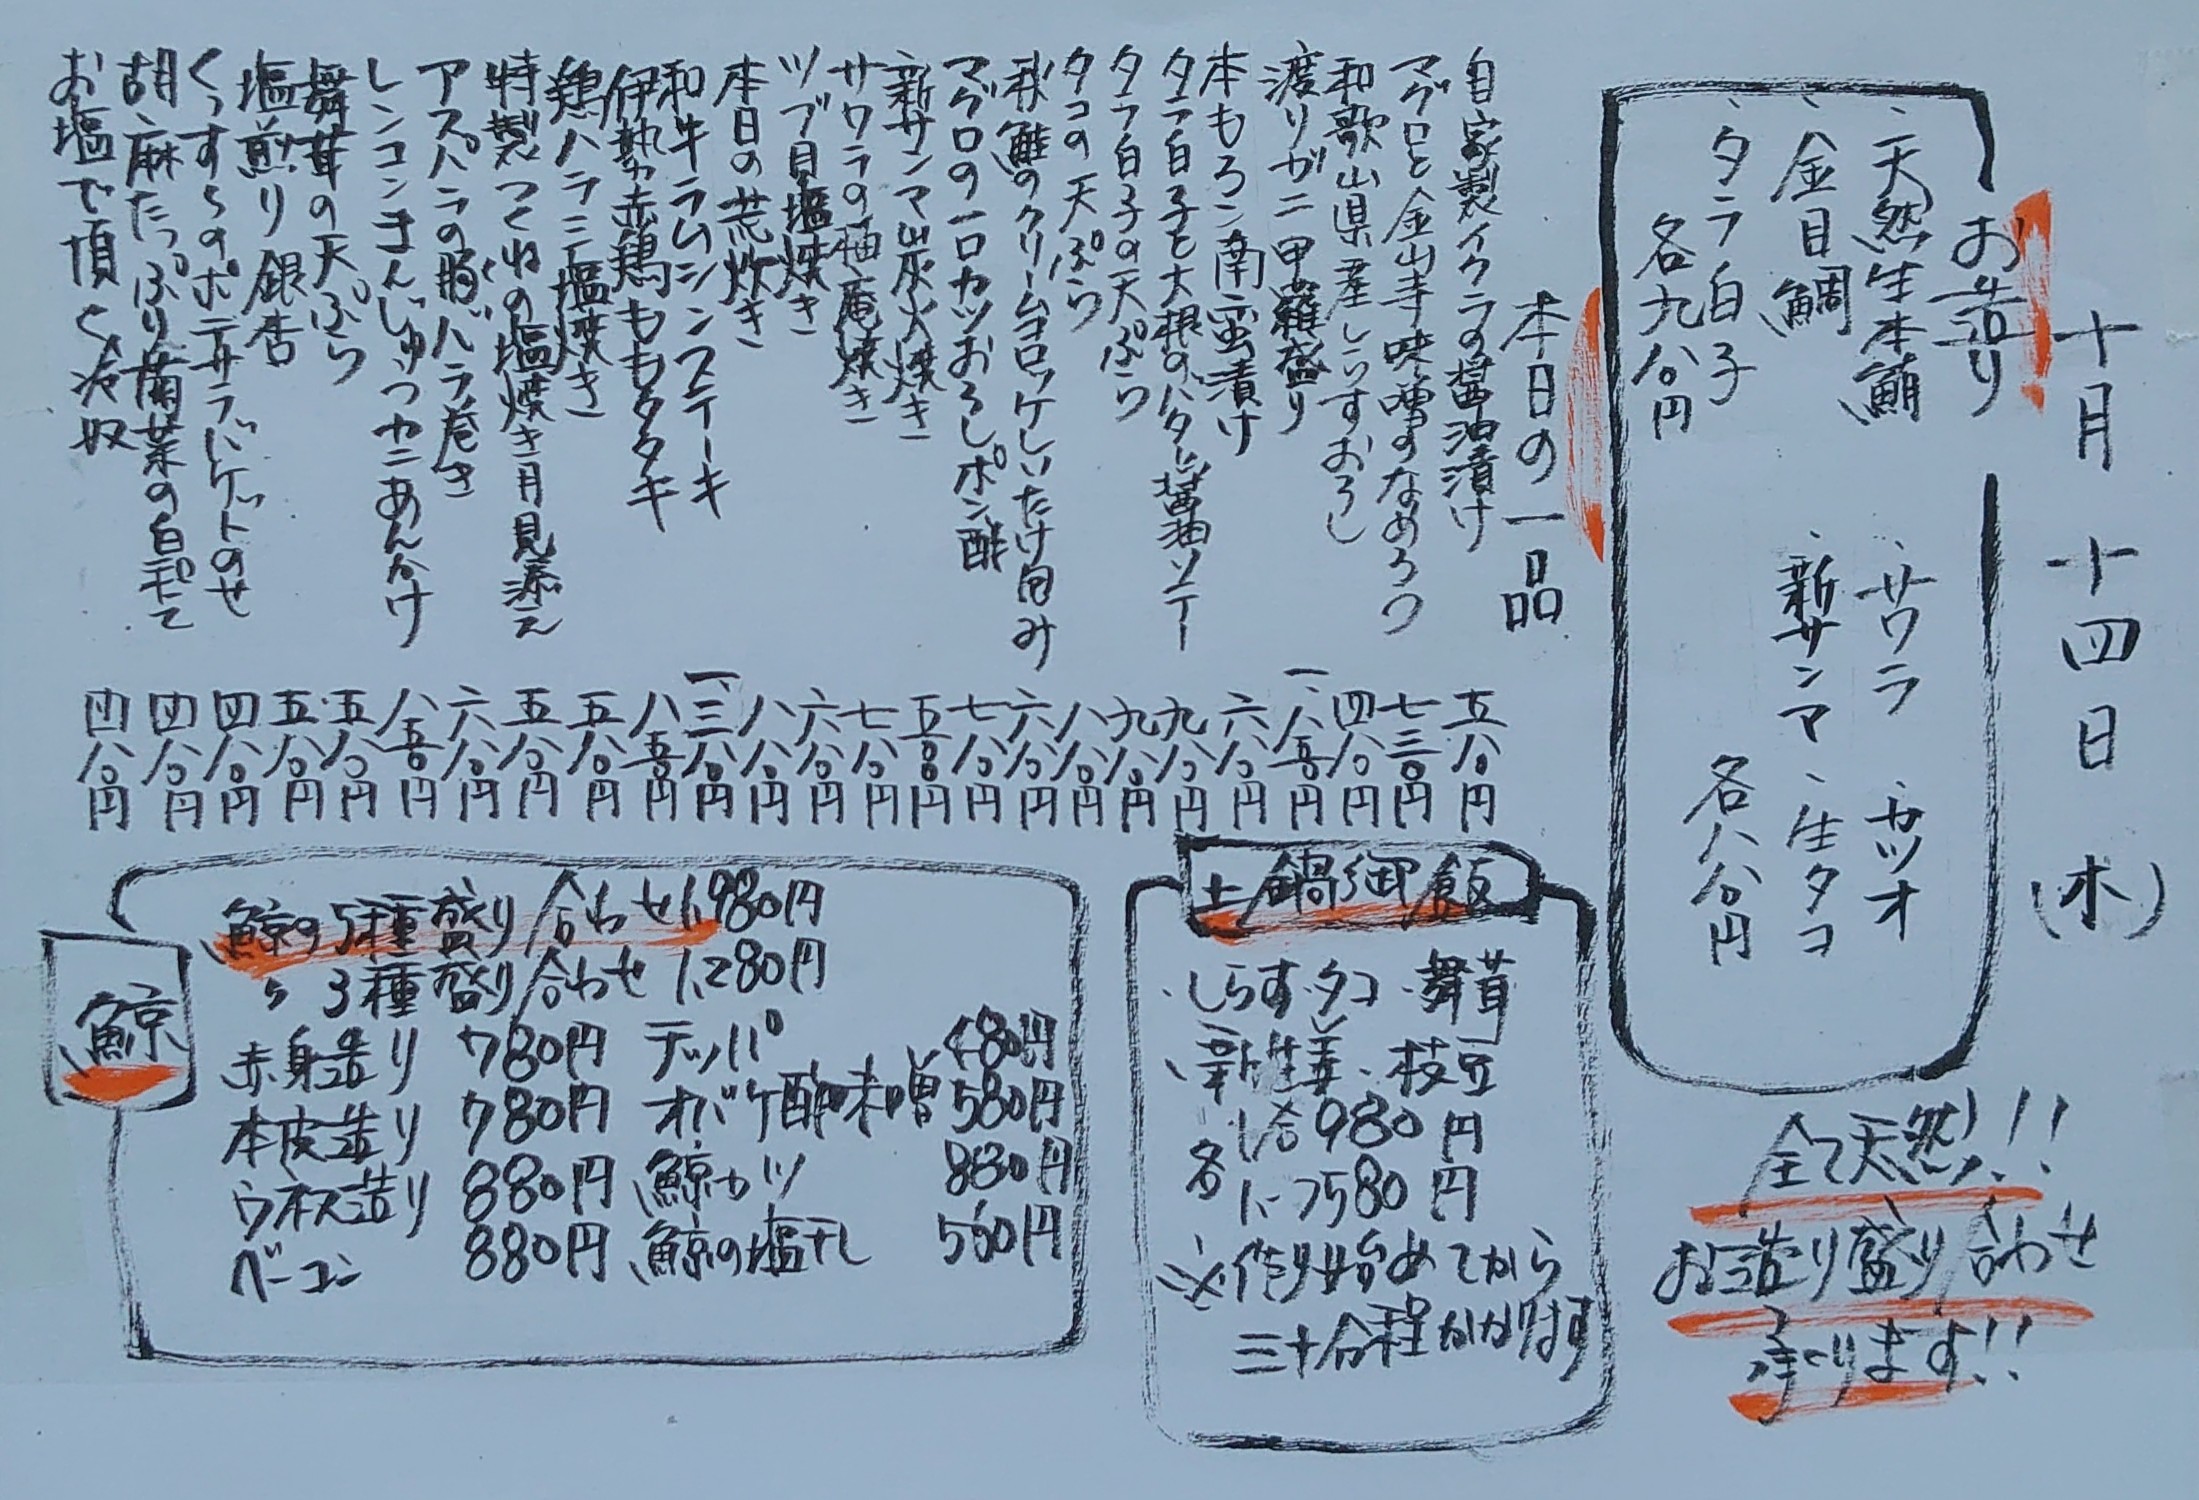 十月十四日(木)
お造り
、天然生本鮪
、サワラ
、カツオ
、金目鯛
、新サンマ
、生タコ
、タラ白子
各八八〇円
各九八〇円
全て天然!!
お造り盛り合わせ
承ります!!
本日の一品
自家製イクラの醤油漬け 五八〇円
マグロと金山寺味噌のなめろう 七三〇円
和歌山県産しらすおろし 四八〇円
渡りガニ甲羅盛り 一、八五〇円
本もろこ南蛮漬け 六八〇円
タラ白子と大根のバター醤油ソテー 九八〇円
タラ白子の天ぷら 九八〇円
タコの天ぷら 八八〇円
秋鮭のクリームコロッケしいたけ包み 六八〇円
マグロの一口カツおろしポン酢 七八〇円
新サンマ炭火焼き 五〇〇円
サワラの柚庵焼き 七八〇円
ツブ貝塩焼き 六八〇円
本日の荒炊き 八八〇円
和牛ラムシンステーキ 一、三八〇円
伊勢赤鶏ももタタキ 八五〇円
鶏ハラミ塩焼き 五八〇円
特製つくねの塩焼き月見添え 五八〇円
アスパラの豚バラ巻き 六八〇円
レンコンまんじゅうカニあんかけ 八五〇円
舞茸の天ぷら 五八〇円
塩煎り銀杏 五八〇円
くっすらのポテサラバゲットのせ 四八〇円
胡麻たっぷり菊菜の白和え 四八〇円
お塩で頂く冷奴 四八〇円
土鍋御飯
・しらす・タコ・舞茸
・新生姜・枝豆
各
1合980円
1.5合1580円
※作り始めてから
三十分程かかります
鯨
鯨の5種盛り合わせ1,980円
〃 3種盛り合わせ 1,280円
赤身造り 780円 テッパ 480円
本皮造り 780円 オバケ酢味噌 580円
ウネス造り 880円 鯨カツ 880円
ベーコン 880円 鯨の塩干し 580円